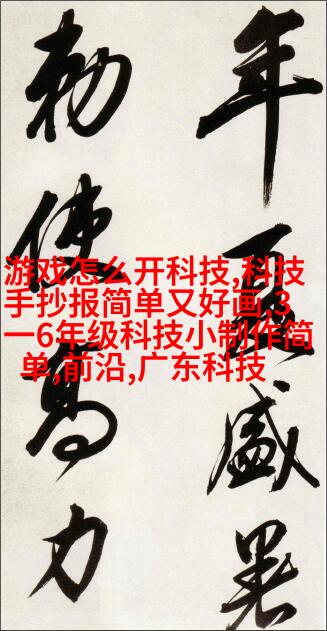 年夏盛暑
勅使高力
游戏怎么开科技,科技
手抄报简单又好画,3
一6年级科技小制作简
单,前沿,广东科技